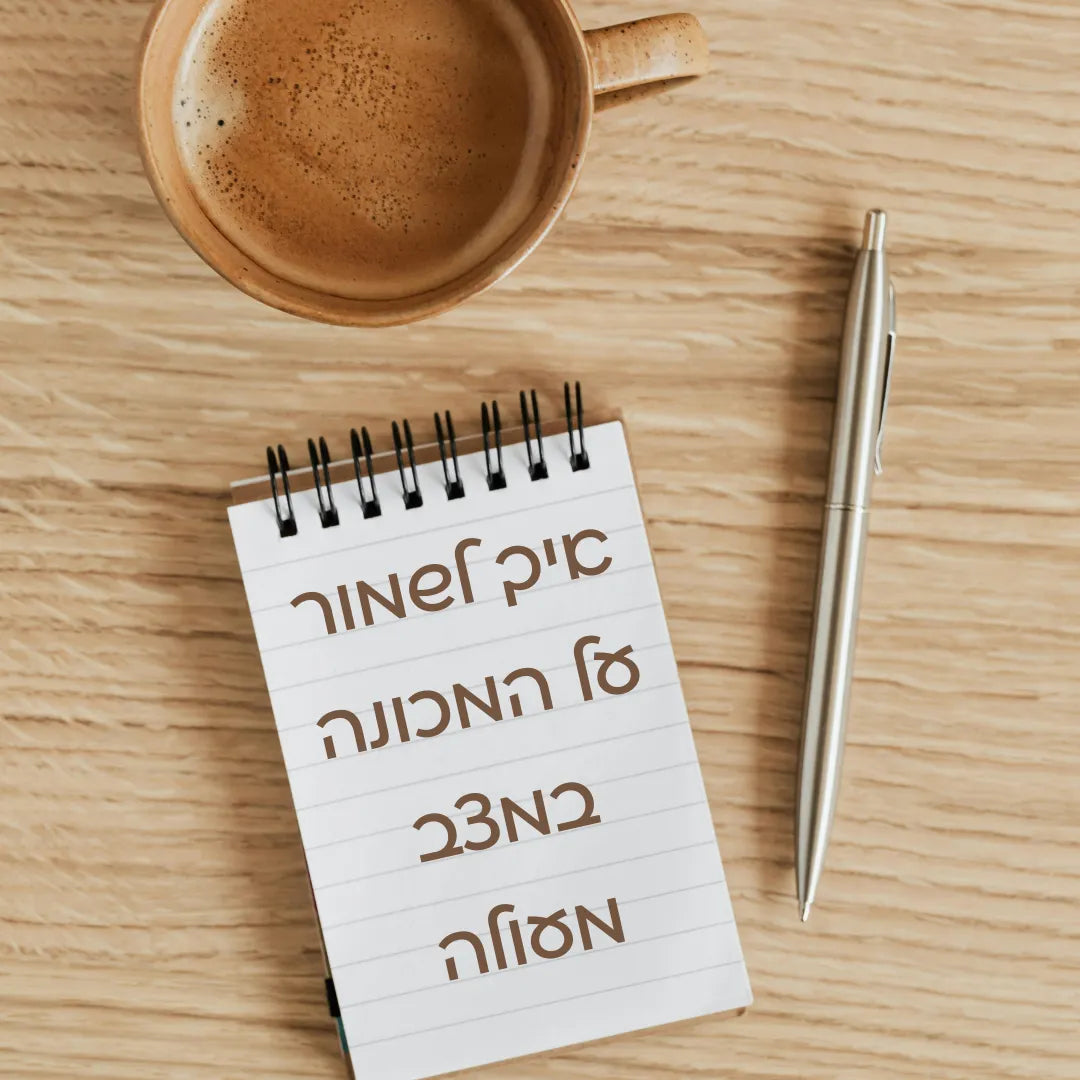 איך לשמור
על המכונה
במצב
מעולה